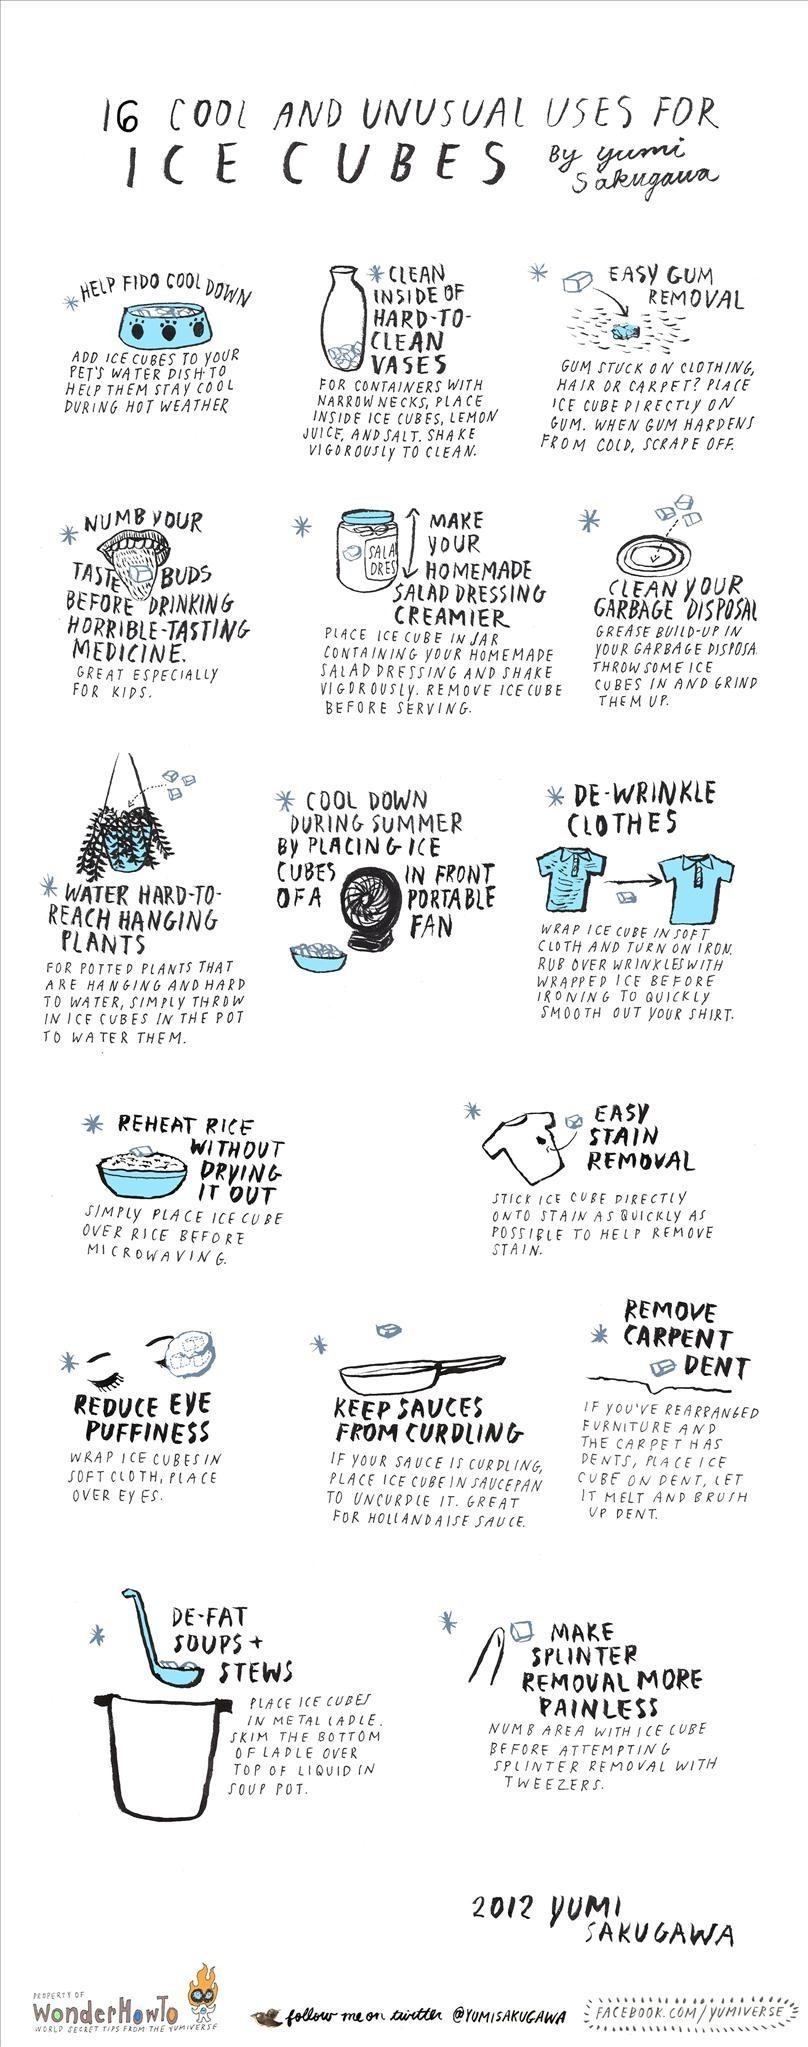 16 COOL AND UNUSUAL USES FOR
ICE CUBES BY yumi
Sakugawa
HELP FIDO COOL DOWN
ADD ICE CUBES TO YOUR
PET'S WATER DISH TO
HELP THEM STAY COOL
DURING HOT WEATHER
CLEAN
INSIDE OF
HARD-TO-
CLEAN
VASES
FOR CONTAINERS WITH
NARROW NECKS, PLACE
INSIDE ICE CUBES, LEMON
JUICE, AND SALT. SHAKE
VIGOROUSLY TO CLEAN.
EASY GUM
REMOVAL
GUM STUCK ON CLOTHING,
HAIR OR CARPET? PLACE
ICE CUBE DIRECTLY ON
GUM. WHEN GUM HARDENS
FROM COLD, SCRAPE OFF.
NUMB YOUR
TASTE BUDS
BEFORE DRINKING
HORRIBLE-TASTING
MEDICINE.
GREAT ESPECIALLY
FOR KIDS.
SALA
DRES
MAKE
YOUR
HOMEMADE
SALAD DRESSING
CREAMIER
PLACE ICE CUBE IN JAR
CONTAINING YOUR HOMEMADE
SALAD DRESSING AND SHAKE
VIGOROUSLY. REMOVE ICE CUBE
BEFORE SERVING.
CLEAN YOUR
GARBAGE DISPOSAL
GREASE BUILD-UP IN
YOUR GARBAGE DISPOSA
THROW SOME ICE
CUBES IN AND GRIND
THEM UP.
WATER HARD-TO-
REACH HANGING
PLANTS
FOR POTTED PLANTS THAT
ARE HANGING AND HARD
TO WATER, SIMPLY THROW
IN ICE CUBES IN THE POT
TO WATER THEM.
COOL DOWN
DURING SUMMER
BY PLACING ICE
CUBES IN FRONT
OF A PORTABLE
FAN
DE-WRINKLE
CLOTHES
WRAP ICE CUBE IN SOFT
CLOTH AND TURN ON IRON.
RUB OVER WRINKLES WITH
WRAPPED ICE BEFORE
IRONING TO QUICKLY
SMOOTH OUT YOUR SHIRT.
REHEAT RICE
WITHOUT
DRYING
IT OUT
SIMPLY PLACE ICE CUBE
OVER RICE BEFORE
MICROWAVING.
EASY
STAIN
REMOVAL
STICK ICE CUBE DIRECTLY
ONTO STAIN AS QUICKLY AS
POSSIBLE TO HELP REMOVE
STAIN.
REDUCE EYE
PUFFINESS
WRAP ICE CUBES IN
SOFT CLOTH, PLACE
OVER EYES.
KEEP SAUCES
FROM CURDLING
IF YOUR SAUCE IS CURDLING,
PLACE ICE CUBE IN SAUCEPAN
TO UNCURDLE IT. GREAT
FOR HOLLANDAISE SAUCE.
REMOVE
CARPENT
DENT
IF YOU'VE REARRANGED
FURNITURE AND
THE CARPET HAS
DENTS, PLACE ICE
CUBE ON DENT, LET
IT MELT AND BRUSH
UP DENT.
DE-FAT
SOUPS +
STEWS
PLACE ICE CUBES
IN METAL LADLE.
SKIM THE BOTTOM
OF LADLE OVER
TOP OF LIQUID IN
SOUP POT.
MAKE
SPLINTER
REMOVAL MORE
PAINLESS
NUMB AREA WITH ICE CUBE
BEFORE ATTEMPTING
SPLINTER REMOVAL WITH
TWEEZERS.
2012 YUMI
SAKUGAWA
PROPERTY OF
WonderHowTo
WORLD SECRET TIPS FROM THE YUMIVERSE
follow me on twitter @YUMISAKUGAWA
FACEBOOK.COM/YUMIVERSE